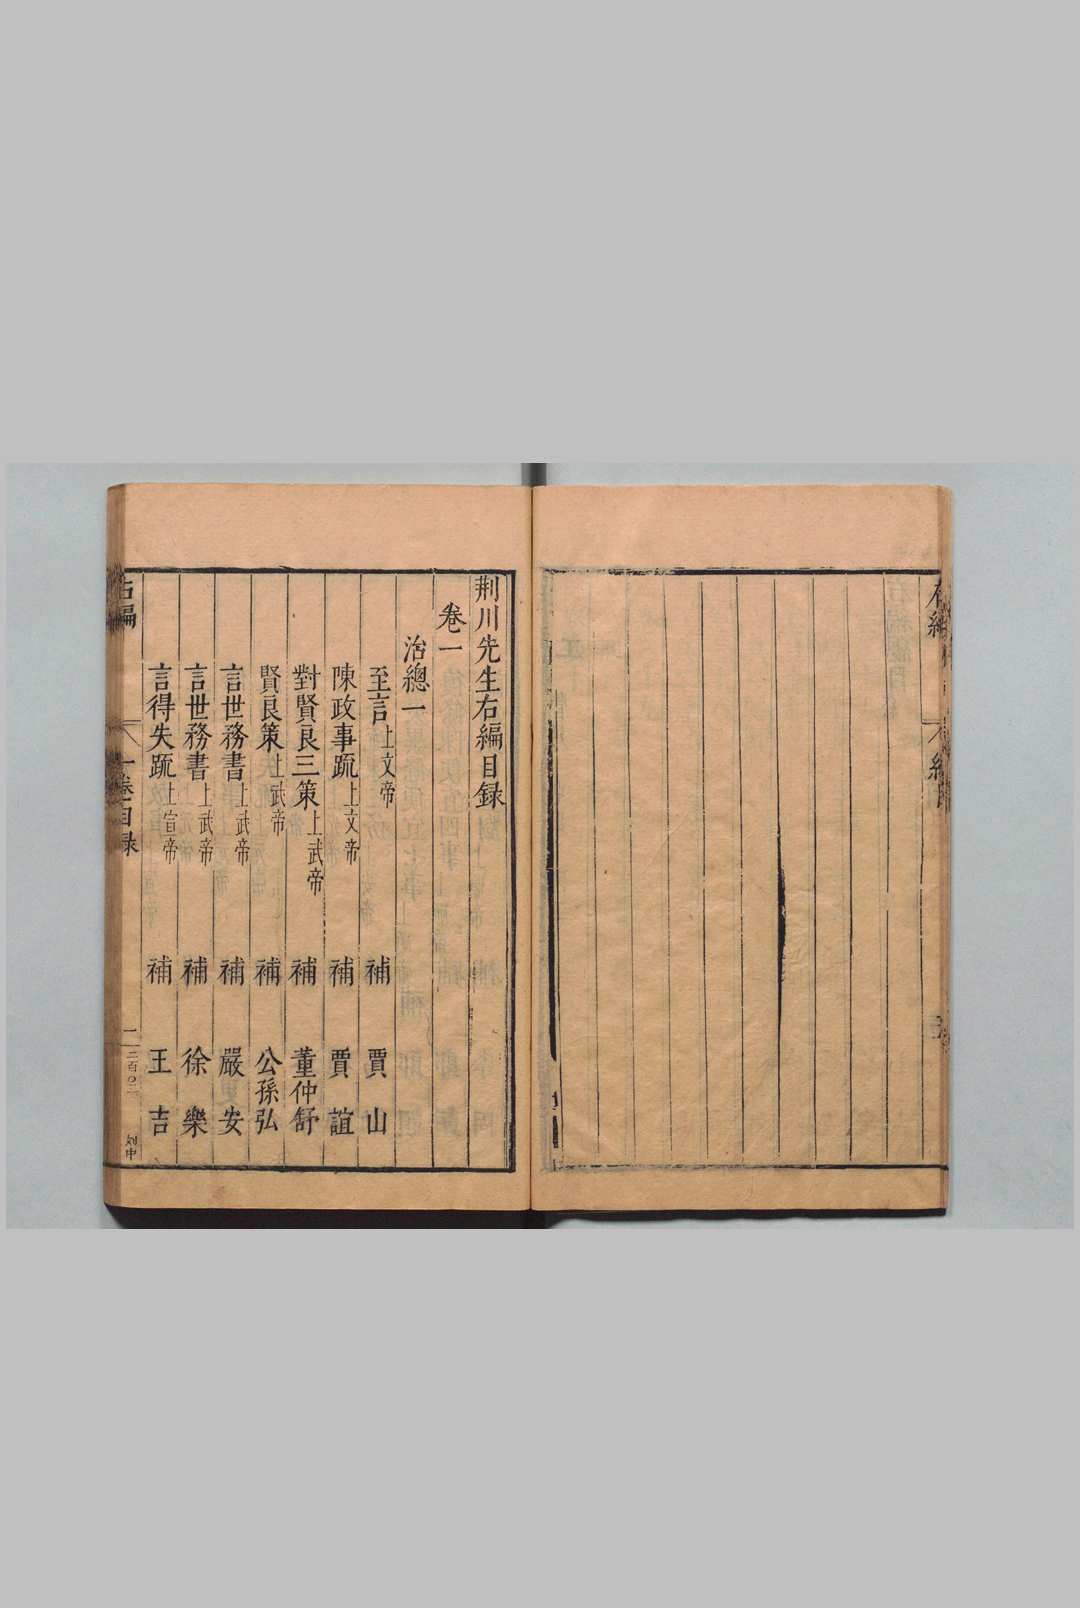 右編
荆川先生右編目録
卷一
治總一
至言上文帝 補 賈山
陳政事疏上文帝 補 賈誼
對賢良三策上武帝 補 董仲舒
賢良策上武帝 補 公孫弘
言世務書上武帝 補 嚴安
言世務書上武帝 補 徐樂
言得失疏上宣帝 補 王吉
右編 卷一目録 一